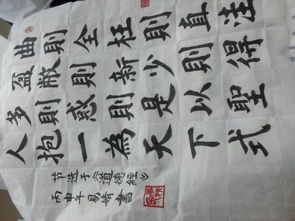 曲則全枉則直注
盈敝則新少則得
多則惑則是以聖
人抱一為天下式
节选于《道德经》
丙申年易崎書